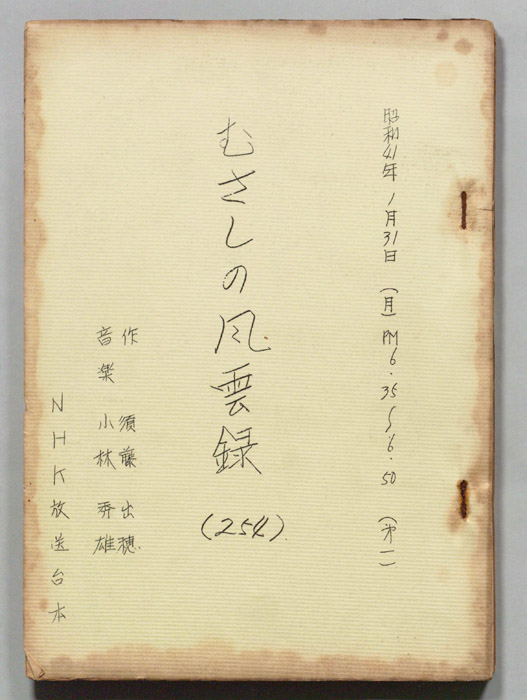 昭和41年1月31日(月)PM6.35〜6.50(第一)
むさしの風雲録
(254)
作 須藤出穂
音楽 小林亜雄
NHK放送台本